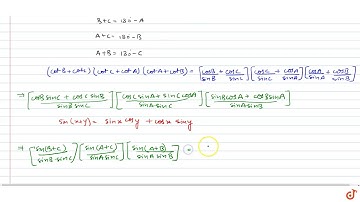 B+C = 180-A
A+C = 180-B
A+B = 180-C
(cotB+cotC) (cotC+cotA) (cotA+cotB) = [cosB/sinB + cosC/sinC] [cosC/sinC + cosA/sinA] [cosA/sinA + cosB/sinB]
⇒ [cosB sinC + cosC sinB / sinB sinC] [cosC sinA + sinC cosA / sinA sinC] [sinB cosA + cosB sinA / sinA sinB]
sin(x+y) = sinx cosy + cosx siny
⇒ [sin(B+C) / sinB·sinC] [sin(A+C) / sinA sinC] [sin(A+B) / sinA sinB] =